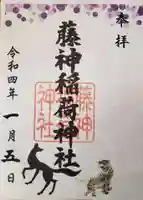 奉拝
藤神稲荷神社
藤神
神社
令和四年一月五日